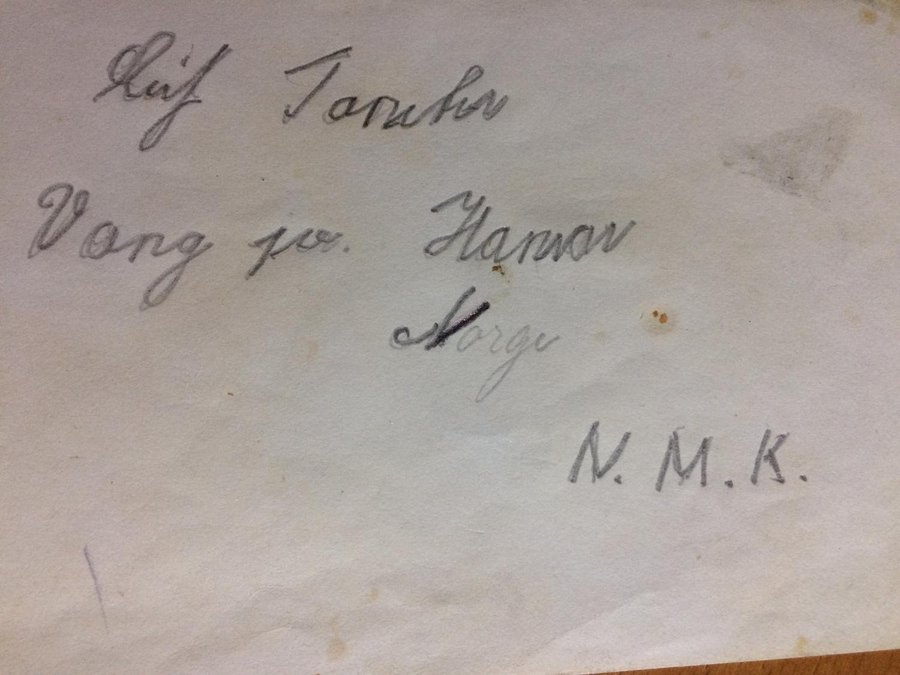 Leif
Vang pr. Hamar
Norge
N. M. K.